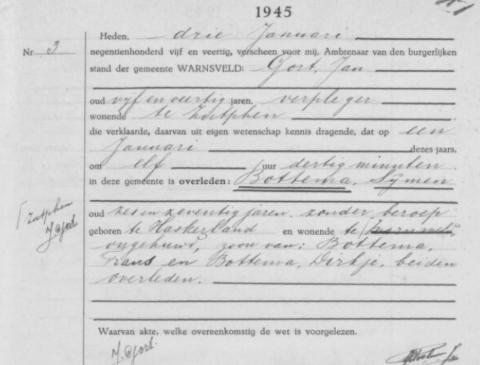 1945
Heden, drie Januari
Nr 3 negentienhonderd vijf en veertig, verscheen voor mij, Ambtenaar van den burgerlijken
stand der gemeente WARNSVELD: Gort, Jan
oud vijf en veertig jaren, verpleger
wonende te Zutphen
die verklaarde, daarvan uit eigen wetenschap kennis dragende, dat op een
Januari dezes jaars,
om elf uur dertig minuten
in deze gemeente is overleden: Bottema, Symen
oud zes en zeventig jaren, zonder beroep
geboren te Haskerland en wonende te
ongehuwd, zoon van: Bottema,
Frans en Bottema, Dirkje, beiden
overleden.
Zutphen
J. Gort.
Waarvan akte, welke overeenkomstig de wet is voorgelezen.
J. Gort.